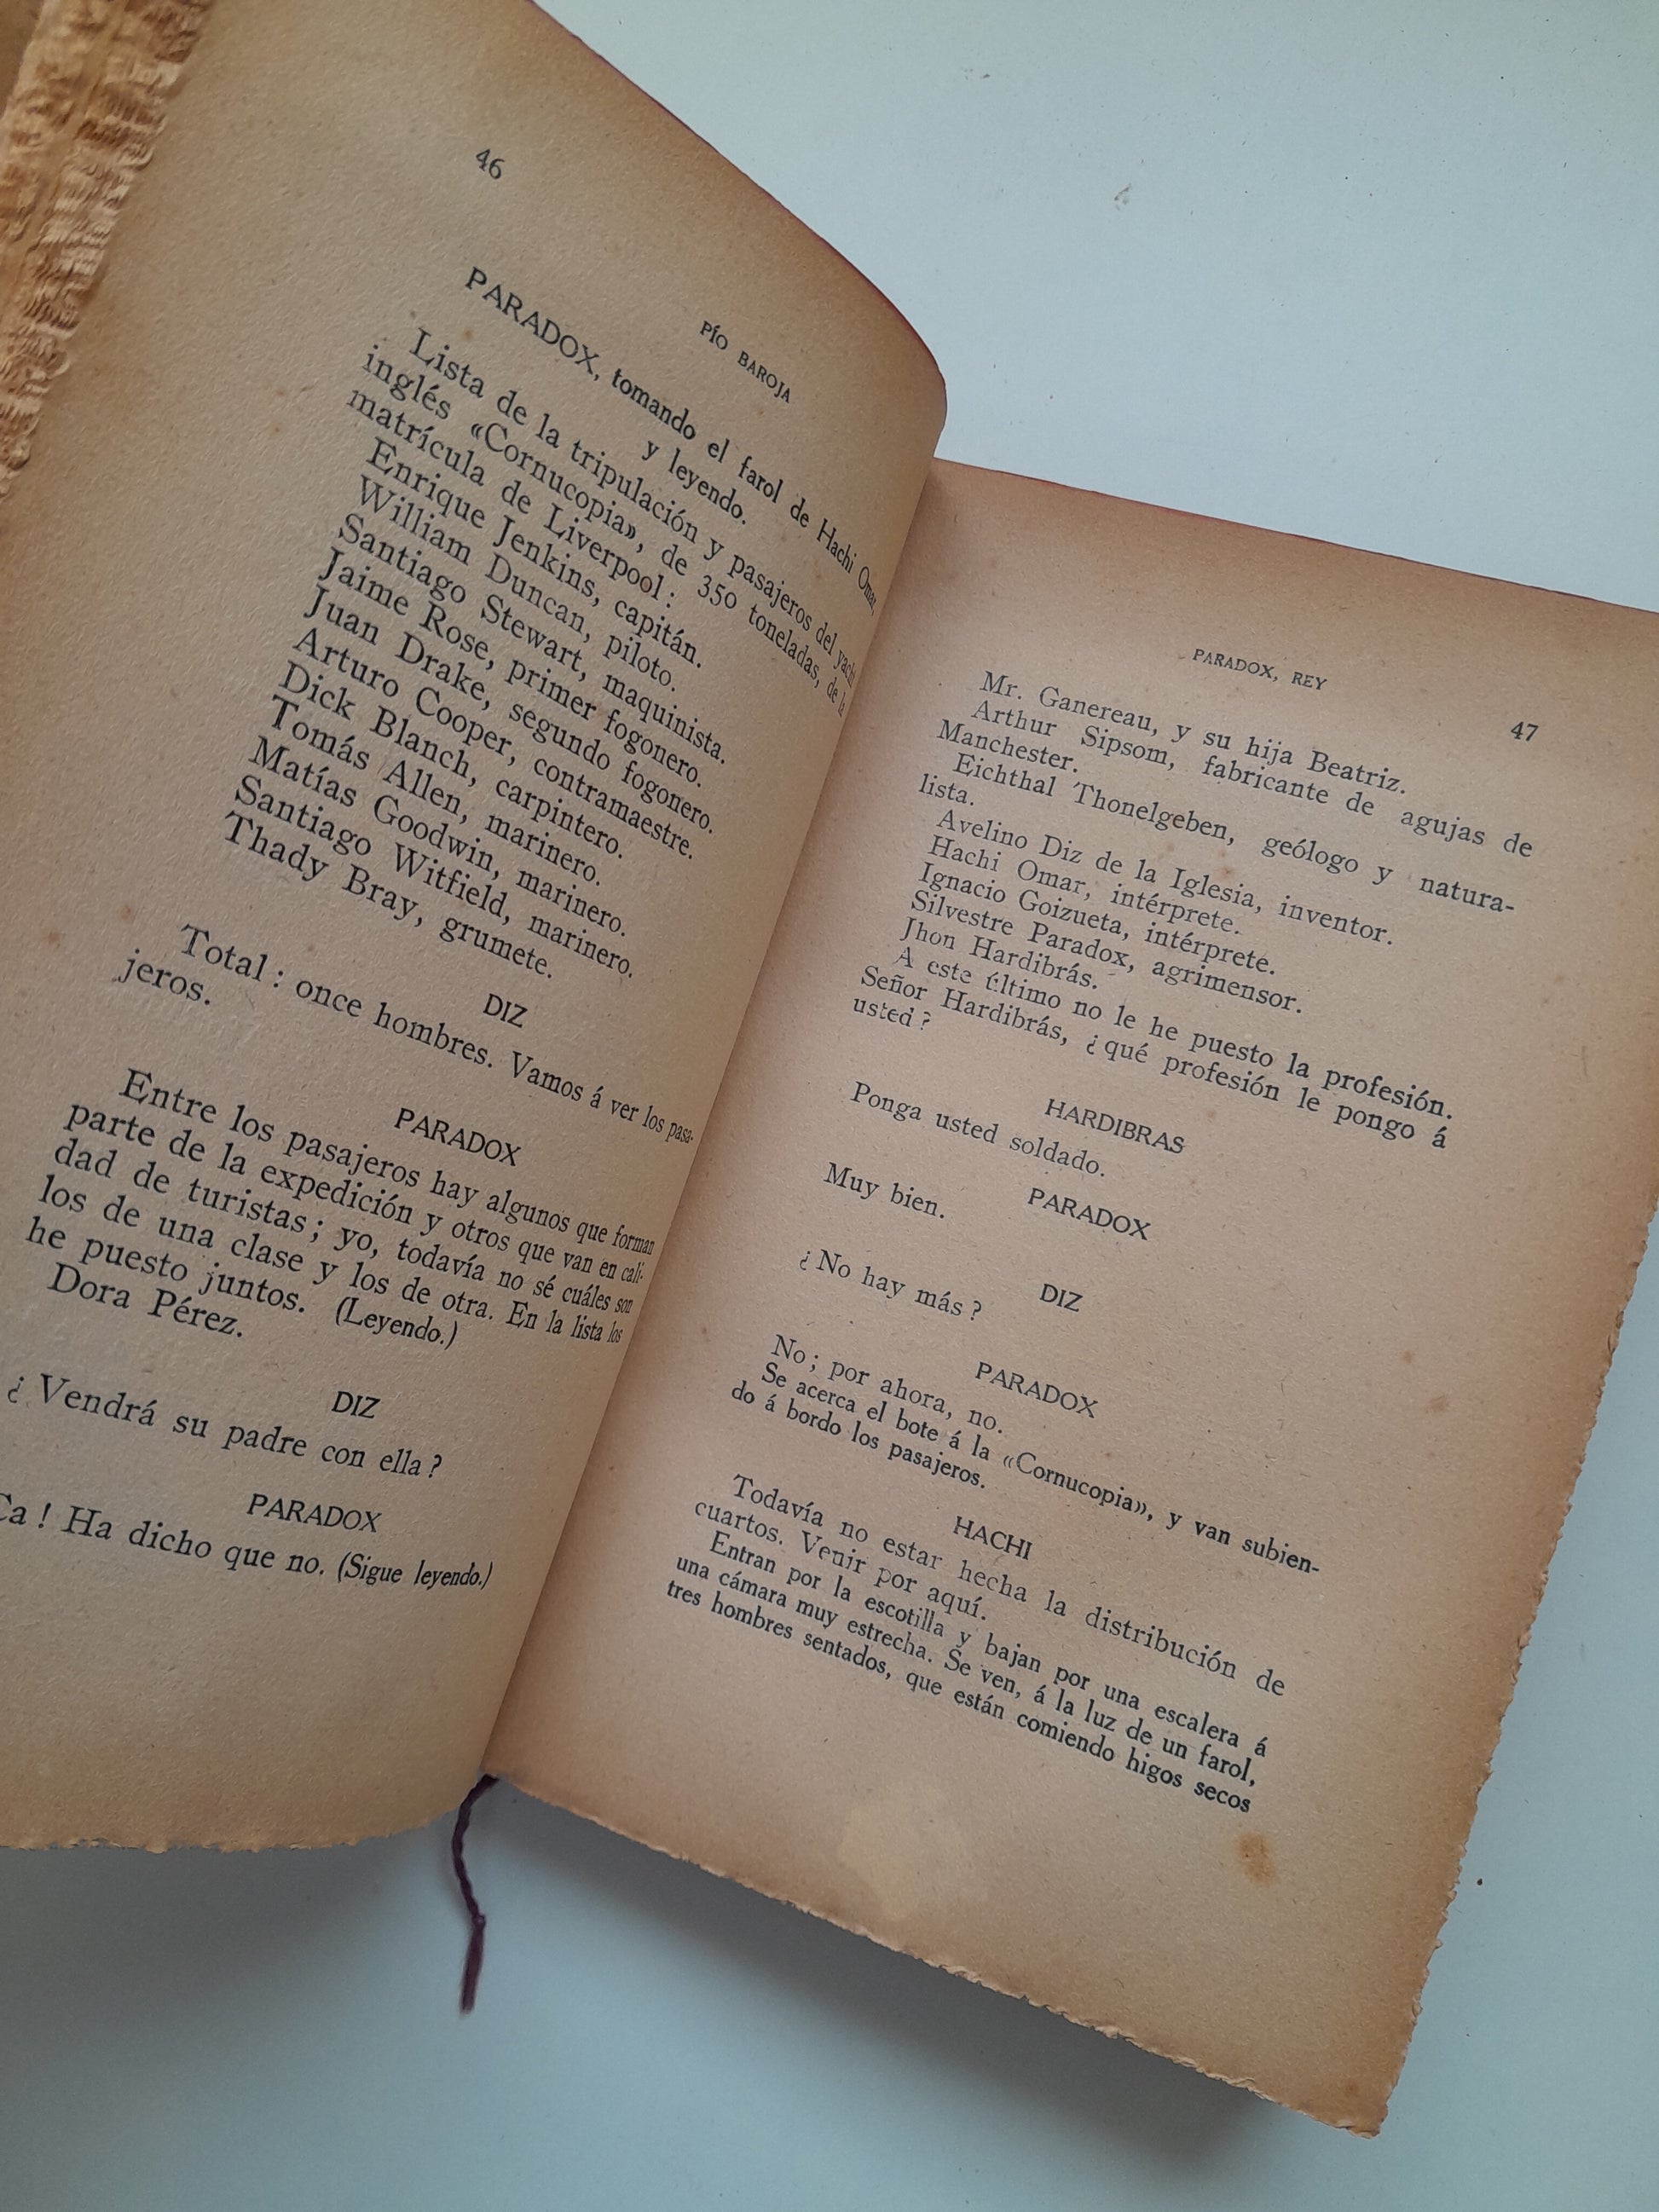 46
PÍO BAROJA
PARADOX, tomando el farol de Hachi Omar,
y leyendo.
Lista de la tripulación y pasajeros del yacht
inglés «Cornucopia», de 350 toneladas, de la
matrícula de Liverpool :
Enrique Jenkins, capitán.
William Duncan, piloto.
Santiago Stewart, maquinista.
Jaime Rose, primer fogonero.
Juan Drake, segundo fogonero.
Arturo Cooper, contramaestre.
Dick Blanch, carpintero.
Tomás Allen, marinero.
Matías Goodwin, marinero.
Santiago Witfield, marinero.
Thady Bray, grumete.
DIZ
Total : once hombres. Vamos á ver los pasa-
jeros.
PARADOX
Entre los pasajeros hay algunos que forman
parte de la expedición y otros que van en cali-
dad de turistas ; yo, todavía no sé cuáles son
los de una clase y los de otra. En la lista los
he puesto juntos. (Leyendo.)
Dora Pérez.
DIZ
¿ Vendrá su padre con ella ?
PARADOX
Ca ! Ha dicho que no. (Sigue leyendo.)
PARADOX, REY
47
Mr. Ganereau, y su hija Beatriz.
Arthur Sipsom, fabricante de agujas de
Manchester.
Eichthal Thonelgeben, geólogo y natura-
lista.
Avelino Diz de la Iglesia, inventor.
Hachi Omar, intérprete.
Ignacio Goizueta, intérprete.
Silvestre Paradox, agrimensor.
Jhon Hardibrás.
A este último no le he puesto la profesión.
Señor Hardibrás, ¿ qué profesión le pongo á
usted ?
HARDIBRAS
Ponga usted soldado.
PARADOX
Muy bien.
DIZ
¿ No hay más ?
PARADOX
No ; por ahora, no.
Se acerca el bote á la «Cornucopia», y van subien-
do á bordo los pasajeros.
HACHI
Todavía no estar hecha la distribución de
cuartos. Venir por aquí.
Entran por la escotilla y bajan por una escalera á
una cámara muy estrecha. Se ven, á la luz de un farol,
tres hombres sentados, que están comiendo higos secos